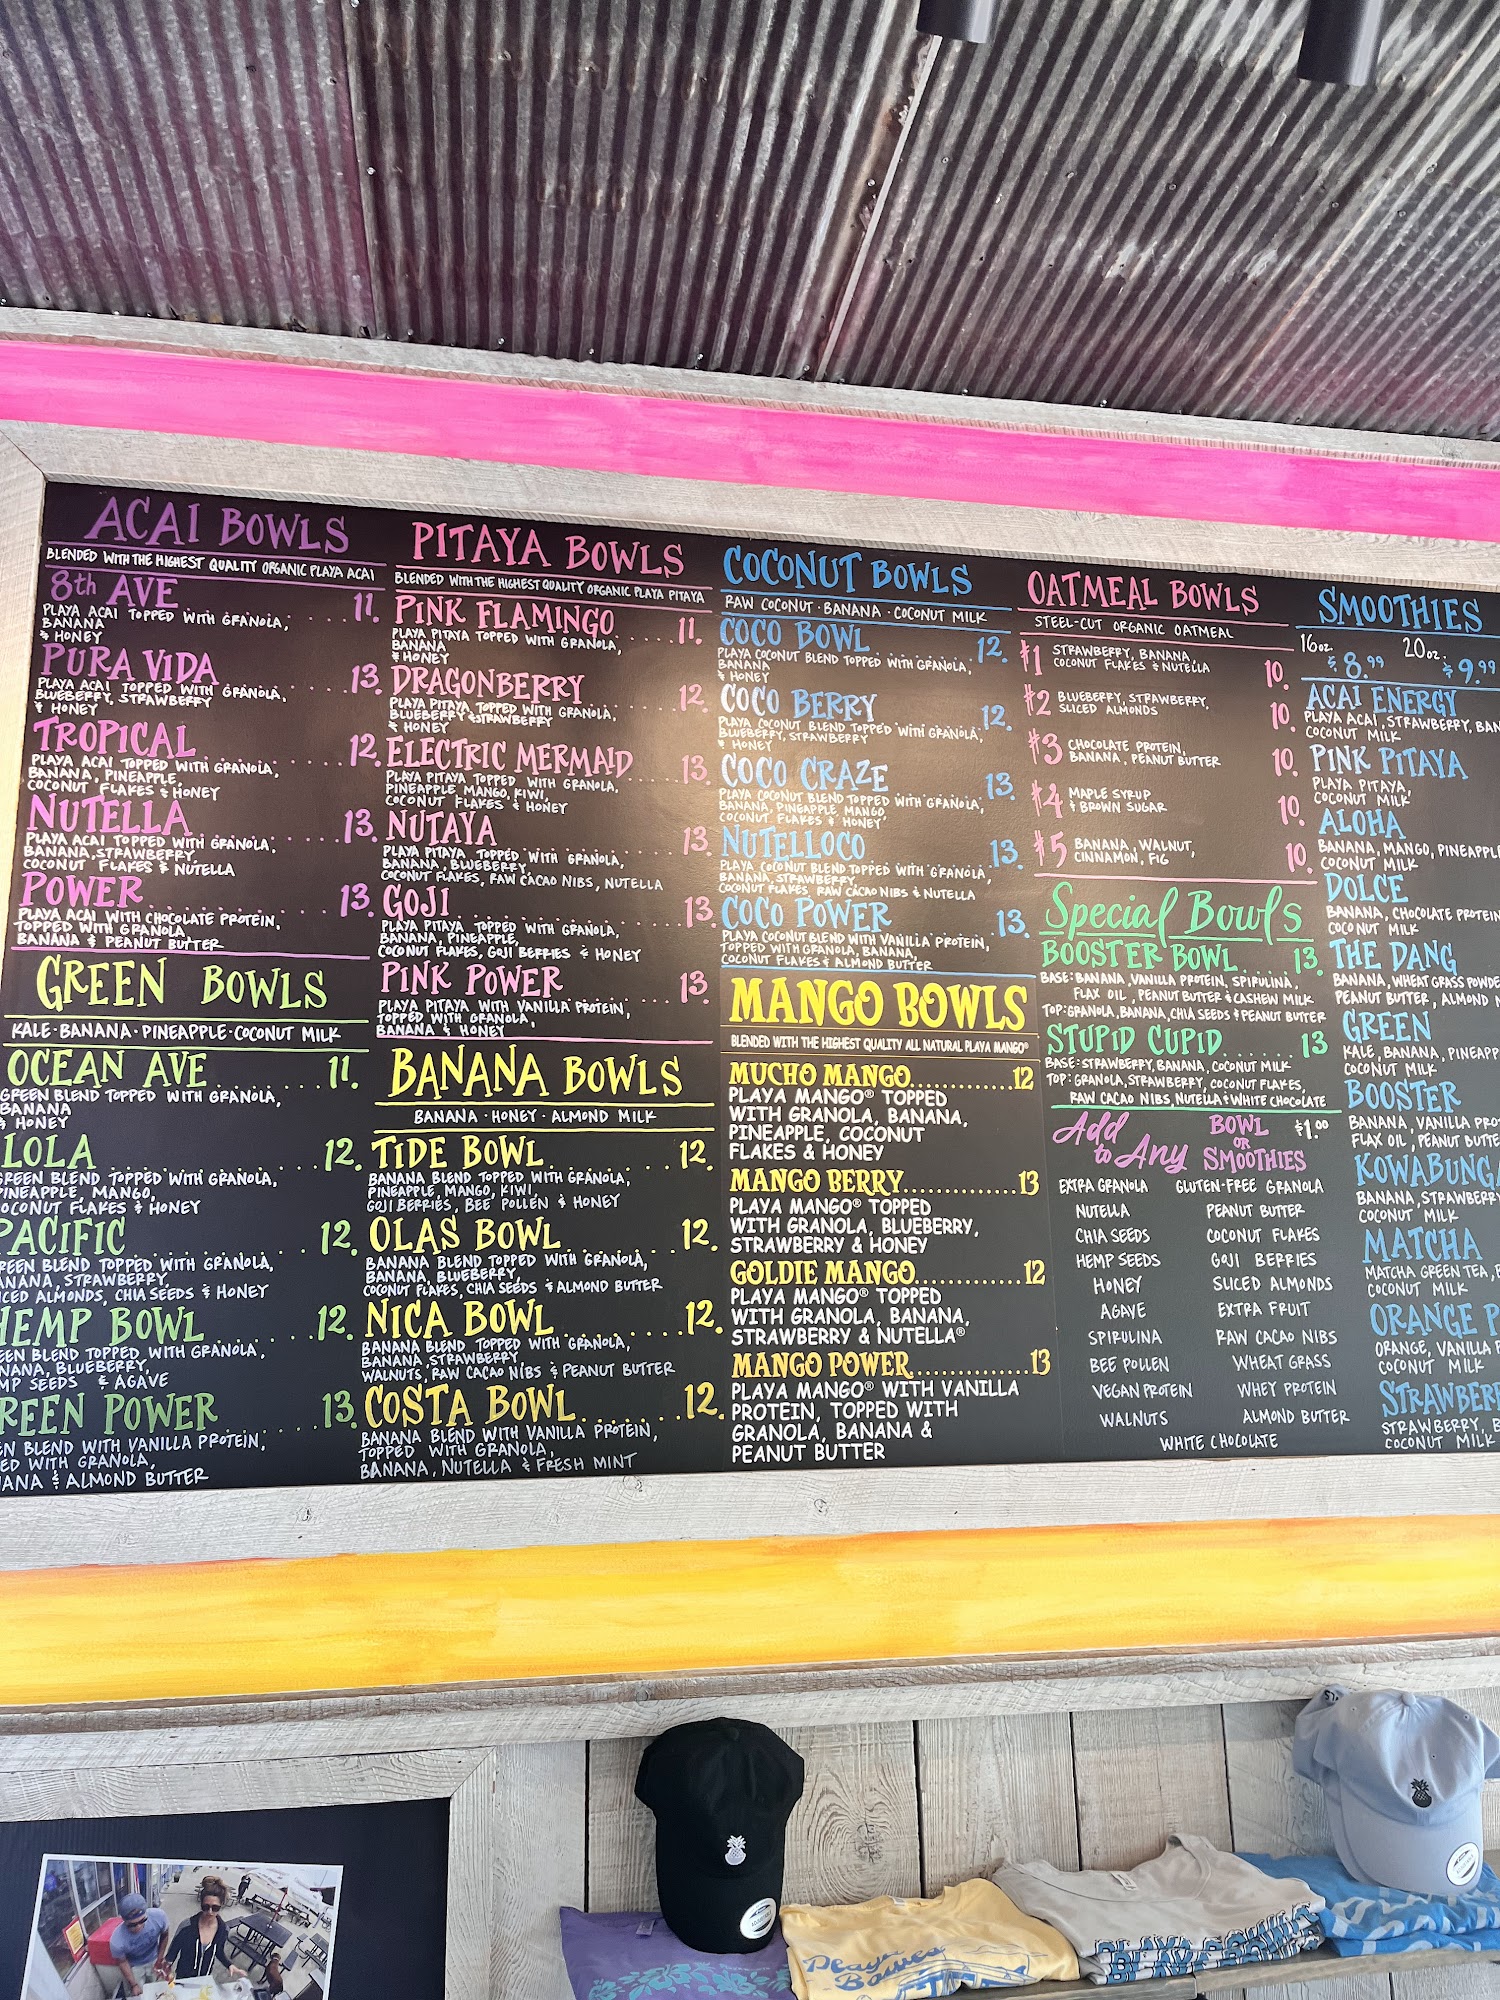 ACAI BOWLS
BLENDED WITH THE HIGHEST QUALITY ORGANIC PLAYA ACAI
8th AVE 11.
PLAYA ACAI TOPPED WITH GRANOLA,
BANANA
& HONEY
PURA VIDA 13.
PLAYA ACAI TOPPED WITH GRANOLA,
BLUEBERRY, STRAWBERRY
& HONEY
TROPICAL 12.
PLAYA ACAI TOPPED WITH GRANOLA,
BANANA, PINEAPPLE,
COCONUT FLAKES & HONEY
NUTELLA 13.
PLAYA ACAI TOPPED WITH GRANOLA,
BANANA, STRAWBERRY,
COCONUT FLAKES & NUTELLA
POWER 13.
PLAYA ACAI WITH CHOCOLATE PROTEIN,
TOPPED WITH GRANOLA,
BANANA & PEANUT BUTTER
GREEN BOWLS
KALE · BANANA · PINEAPPLE · COCONUT MILK
OCEAN AVE 11.
GREEN BLEND TOPPED WITH GRANOLA,
BANANA
& HONEY
LOLA 12.
GREEN BLEND TOPPED WITH GRANOLA,
PINEAPPLE, MANGO,
COCONUT FLAKES & HONEY
PACIFIC 12.
GREEN BLEND TOPPED WITH GRANOLA,
BANANA, STRAWBERRY,
SLICED ALMONDS, CHIA SEEDS & HONEY
HEMP BOWL 12.
EEN BLEND TOPPED WITH GRANOLA,
NANA, BLUEBERRY,
MP SEEDS & AGAVE
REEN POWER 13.
EN BLEND WITH VANILLA PROTEIN,
ED WITH GRANOLA,
ANA & ALMOND BUTTER
PITAYA BOWLS
BLENDED WITH THE HIGHEST QUALITY ORGANIC PLAYA PITAYA
PINK FLAMINGO 11.
PLAYA PITAYA TOPPED WITH GRANOLA,
BANANA
& HONEY
DRAGONBERRY 12.
PLAYA PITAYA TOPPED WITH GRANOLA,
BLUEBERRY & STRAWBERRY
& HONEY
ELECTRIC MERMAID 13.
PLAYA PITAYA TOPPED WITH GRANOLA,
PINEAPPLE, MANGO, KIWI,
COCONUT FLAKES & HONEY
NUTAYA 13.
PLAYA PITAYA TOPPED WITH GRANOLA,
BANANA, BLUEBERRY,
COCONUT FLAKES, RAW CACAO NIBS, NUTELLA
GOJI 13.
PLAYA PITAYA TOPPED WITH GRANOLA,
BANANA, PINEAPPLE,
COCONUT FLAKES, GOJI BERRIES & HONEY
PINK POWER 13.
PLAYA PITAYA WITH VANILLA PROTEIN,
TOPPED WITH GRANOLA,
BANANA & HONEY
BANANA BOWLS
BANANA · HONEY · ALMOND MILK
TIDE BOWL 12.
BANANA BLEND TOPPED WITH GRANOLA,
PINEAPPLE, MANGO, KIWI,
GOJI BERRIES, BEE POLLEN & HONEY
OLAS BOWL 12.
BANANA BLEND TOPPED WITH GRANOLA,
BANANA, BLUEBERRY,
COCONUT FLAKES, CHIA SEEDS & ALMOND BUTTER
NICA BOWL 12.
BANANA BLEND TOPPED WITH GRANOLA,
BANANA, STRAWBERRY
WALNUTS, RAW CACAO NIBS & PEANUT BUTTER
COSTA BOWL 12.
BANANA BLEND WITH VANILLA PROTEIN,
TOPPED WITH GRANOLA,
BANANA, NUTELLA & FRESH MINT
COCONUT BOWLS
RAW COCONUT · BANANA · COCONUT MILK
COCO BOWL 12.
PLAYA COCONUT BLEND TOPPED WITH GRANOLA,
BANANA
& HONEY
COCO BERRY 12.
PLAYA COCONUT BLEND TOPPED WITH GRANOLA,
BLUEBERRY, STRAWBERRY
& HONEY
COCO CRAZE 13.
PLAYA COCONUT BLEND TOPPED WITH GRANOLA,
BANANA, PINEAPPLE, MANGO
COCONUT FLAKES & HONEY
NUTELLOCO 13.
PLAYA COCONUT BLEND TOPPED WITH GRANOLA,
BANANA, STRAWBERRY,
COCONUT FLAKES, RAW CACAO NIBS & NUTELLA
COCO POWER 13.
PLAYA COCONUT BLEND WITH VANILLA PROTEIN,
TOPPED WITH GRANOLA, BANANA,
COCONUT FLAKES & ALMOND BUTTER
MANGO BOWLS
BLENDED WITH THE HIGHEST QUALITY ALL NATURAL PLAYA MANGO®
MUCHO MANGO............12
PLAYA MANGO® TOPPED
WITH GRANOLA, BANANA,
PINEAPPLE, COCONUT
FLAKES & HONEY
MANGO BERRY............13
PLAYA MANGO® TOPPED
WITH GRANOLA, BLUEBERRY,
STRAWBERRY & HONEY
GOLDIE MANGO............12
PLAYA MANGO® TOPPED
WITH GRANOLA, BANANA,
STRAWBERRY & NUTELLA®
MANGO POWER............13
PLAYA MANGO® WITH VANILLA
PROTEIN, TOPPED WITH
GRANOLA, BANANA &
PEANUT BUTTER
OATMEAL BOWLS
STEEL-CUT ORGANIC OATMEAL
#1 STRAWBERRY, BANANA
COCONUT FLAKES & NUTELLA 10.
#2 BLUEBERRY, STRAWBERRY,
SLICED ALMONDS 10.
#3 CHOCOLATE PROTEIN,
BANANA, PEANUT BUTTER 10.
#4 MAPLE SYRUP
& BROWN SUGAR 10.
#5 BANANA, WALNUT,
CINNAMON, FIG 10.
Special Bowls
BOOSTER BOWL 13.
BASE: BANANA, VANILLA PROTEIN, SPIRULINA,
FLAX OIL, PEANUT BUTTER & CASHEW MILK
TOP: GRANOLA, BANANA, CHIA SEEDS & PEANUT BUTTER
STUPID CUPID 13
BASE: STRAWBERRY, BANANA, COCONUT MILK
TOP: GRANOLA, STRAWBERRY, COCONUT FLAKES,
RAW CACAO NIBS, NUTELLA & WHITE CHOCOLATE
Add to Any BOWL OR SMOOTHIES $1.00
EXTRA GRANOLA GLUTEN-FREE GRANOLA
NUTELLA PEANUT BUTTER
CHIA SEEDS COCONUT FLAKES
HEMP SEEDS GOJI BERRIES
HONEY SLICED ALMONDS
AGAVE EXTRA FRUIT
SPIRULINA RAW CACAO NIBS
BEE POLLEN WHEAT GRASS
VEGAN PROTEIN WHEY PROTEIN
WALNUTS ALMOND BUTTER
WHITE CHOCOLATE
SMOOTHIES
16oz. 20oz.
$8.99 $9.99
ACAI ENERGY
PLAYA ACAI, STRAWBERRY, BAN
COCONUT MILK
PINK PITAYA
PLAYA PITAYA,
COCONUT MILK
ALOHA
BANANA, MANGO, PINEAPPLE
COCONUT MILK
DOLCE
BANANA, CHOCOLATE PROTEIN
COCONUT MILK
THE DANG
BANANA, WHEAT GRASS POWDE
PEANUT BUTTER, ALMOND M
GREEN
KALE, BANANA, PINEAPP
COCONUT MILK
BOOSTER
BANANA, VANILLA PRO
FLAX OIL, PEANUT BUTTE
KOWABUNGA
BANANA, STRAWBERRY
COCONUT MILK
MATCHA
MATCHA GREEN TEA,
COCONUT MILK
ORANGE P
ORANGE, VANILLA
COCONUT MILK
STRAWBER
STRAWBERRY, B
COCONUT MILK
Playa
Bowls